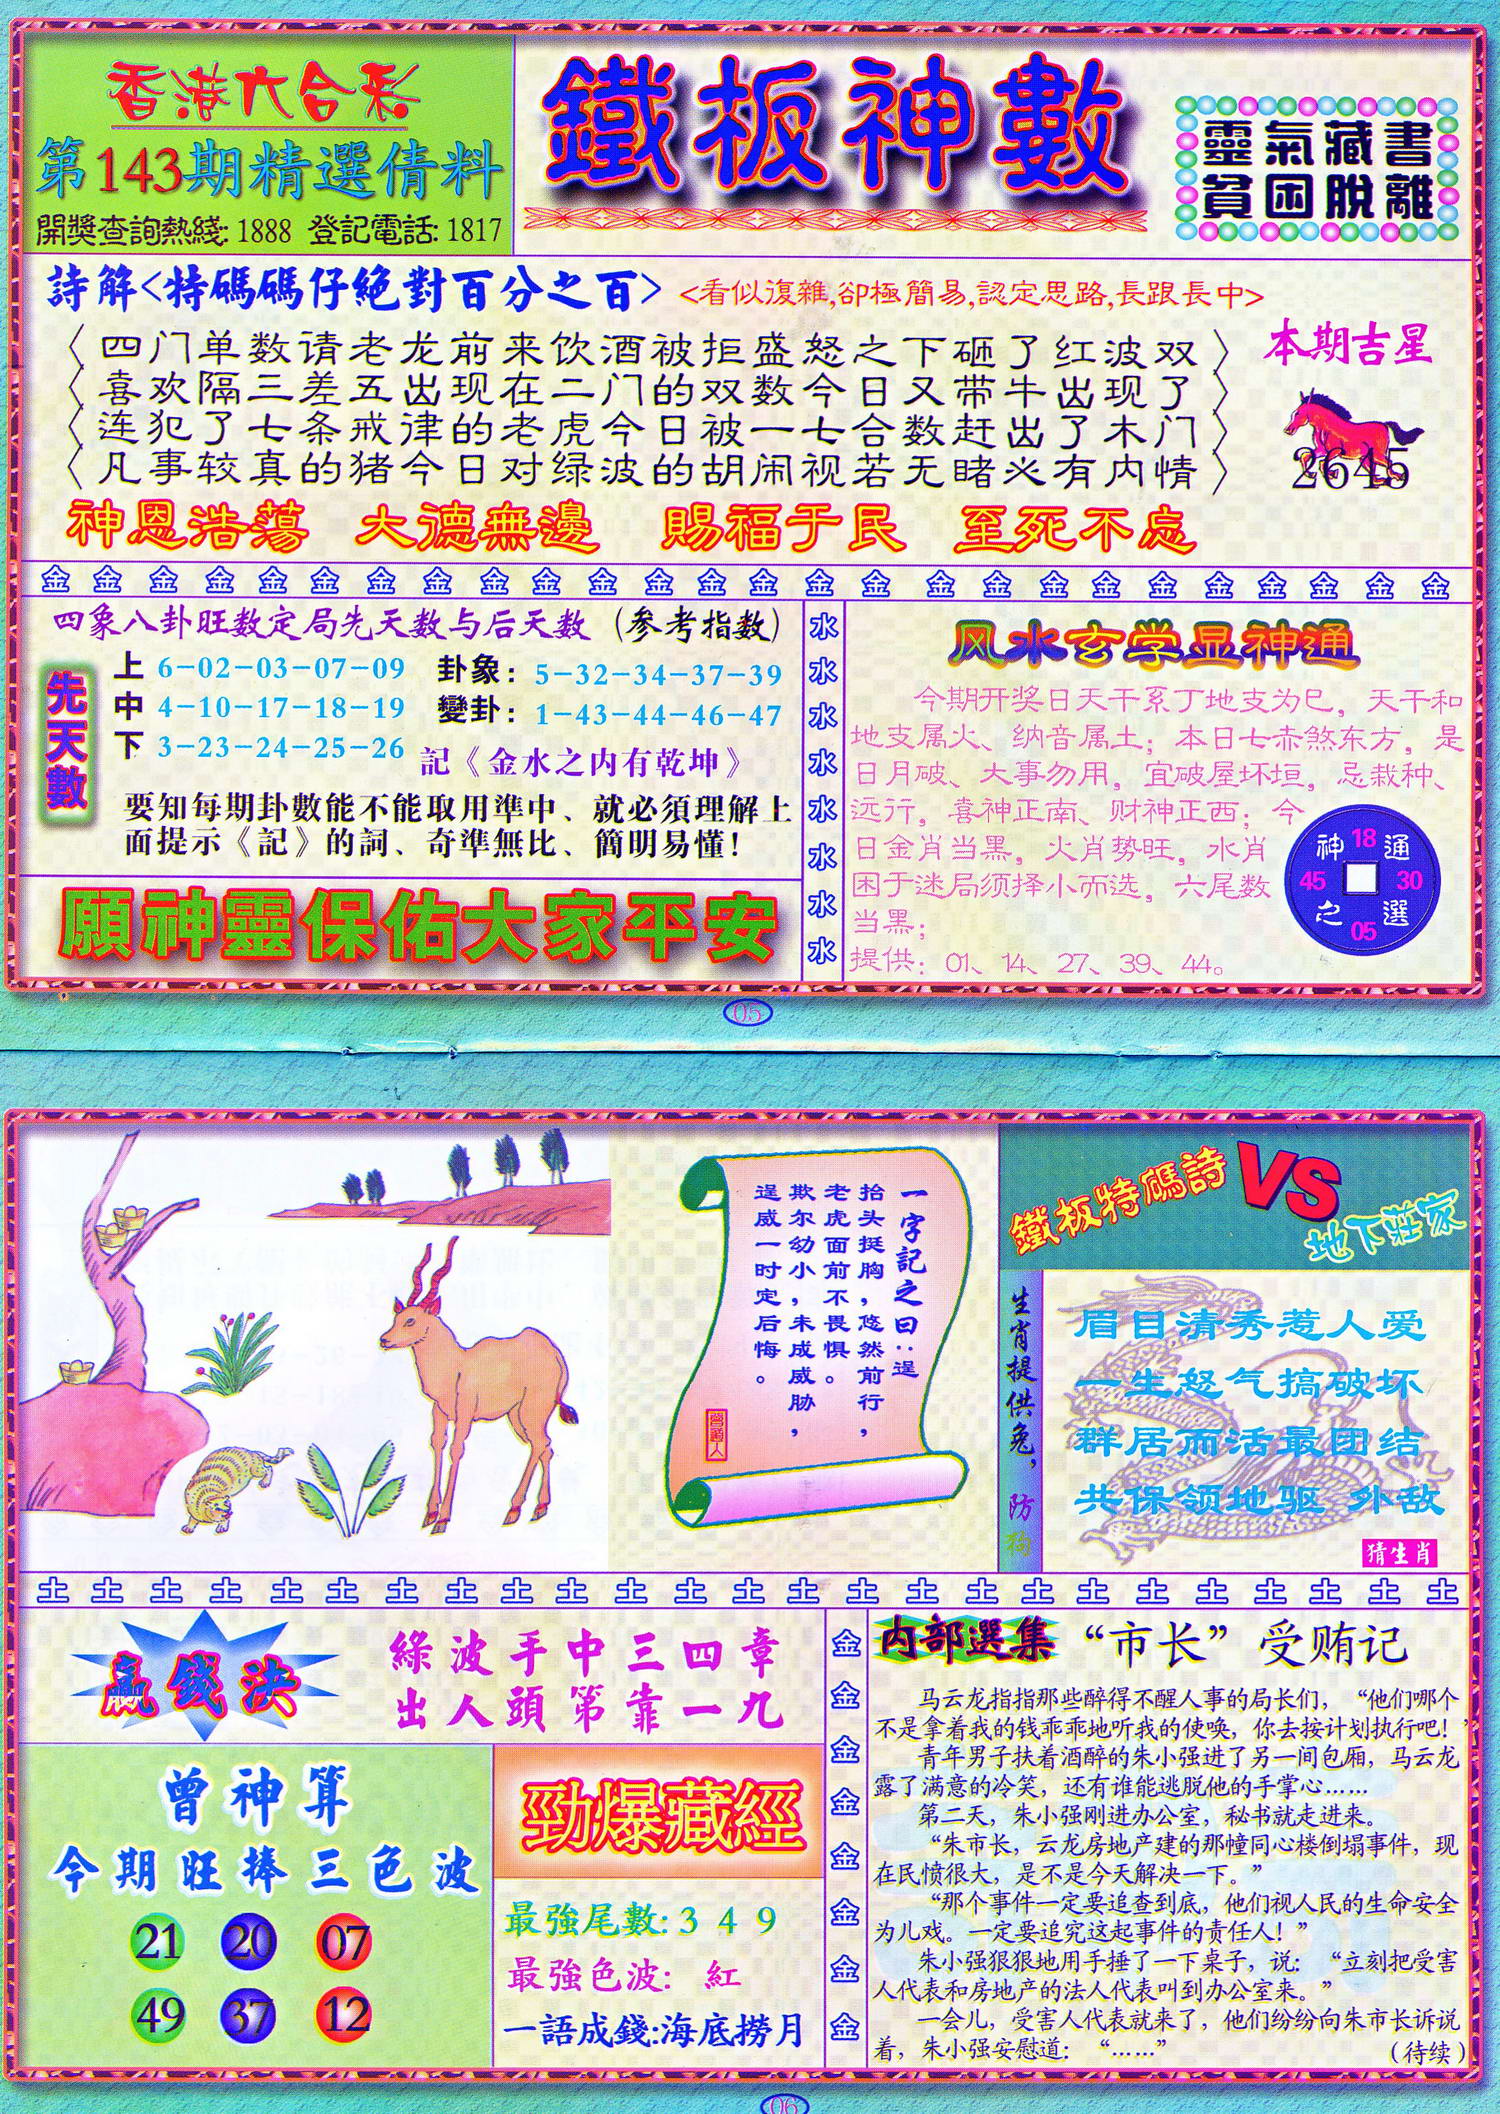 香港六合彩
第143期精選倩料
開獎查詢熱綫:1888 登記電話:1817
鐵板神數
靈氣藏書
貧困脫離
詩解<特碼碼仔絕對百分之百>
<看似復雜,卻極簡易,認定思路,長跟長中>
四门单数请老龙前来饮酒被拒盛怒之下砸了红波双
喜欢隔三差五出现在二门的双数今日又带牛出现了
连犯了七条戒律的老虎今日被一七合数赶出了木门
凡事较真的猪今日对绿波的胡闹视若无睹必有内情
本期吉星
2645
神恩浩蕩 大德無邊 賜福于民 至死不忘
金 金 金 金 金 金 金 金 金 金 金 金 金 金 金 金 金 金 金 金 金 金 金 金 金 金
四象八卦旺数定局先天数与后天数(参考指数)
先天數
上 6-02-03-07-09
中 4-10-17-18-19
下 3-23-24-25-26
卦象: 5-32-34-37-39
變卦: 1-43-44-46-47
記《金水之内有乾坤》
要知每期卦數能不能取用準中、就必須理解上
面提示《記》的詞、奇準無比、簡明易懂!
願神靈保佑大家平安
水
水
水
水
水
水
水
水
风水玄学显神通
今期开奖日天干系丁地支为巳，天干和
地支属火、纳音属土；本日七赤煞东方，是
日月破、大事勿用，宜破屋坏垣，忌栽种、
远行，喜神正南、财神正西；今
日金肖当黑，火肖势旺，水肖
困于迷局须择小而选，六尾数
当黑；
提供：01、14、27、39、44。
神 18 通
45 30
之 05 選
05
一字記之曰：逞
抬头挺胸，悠然前行，
老虎面前不畏惧。
欺尔幼小，未成威胁，
逞威一时定后悔。
曾道人
鐵板特碼詩
VS
地下莊家
生肖提供兔，防狗
眉目清秀惹人爱
一生怒气搞破坏
群居而活最团结
共保领地驱 外敌
猜生肖
土 土 土 土 土 土 土 土 土 土 土 土 土 土 土 土 土 土 土 土 土 土 土 土 土
贏錢決
綠波手中三四章
出人頭第靠一九
曾神算
今期旺捧三色波
21 20 07
49 37 12
勁爆藏經
最強尾數:3 4 9
最強色波: 紅
一語成錢:海底撈月
金
金
金
金
金
金
金
金
内部選集 “市长”受贿记
马云龙指指那些醉得不醒人事的局长们，“他们哪个
不是拿着我的钱乖乖地听我的使唤，你去按计划执行吧！”
青年男子扶着酒醉的朱小强进了另一间包厢，马云龙
露了满意的冷笑，还有谁能逃脱他的手掌心……
第二天，朱小强刚进办公室，秘书就走进来。
“朱市长，云龙房地产建的那幢同心楼倒塌事件，现
在民愤很大，是不是今天解决一下。”
“那个事件一定要追查到底，他们视人民的生命安全
为儿戏。一定要追究这起事件的责任人！”
朱小强狠狠地用手捶了一下桌子，说：“立刻把受害
人代表和房地产的法人代表叫到办公室来。”
一会儿，受害人代表就来了，他们纷纷向朱市长诉说
着，朱小强安慰道：“……”
（待续）
06